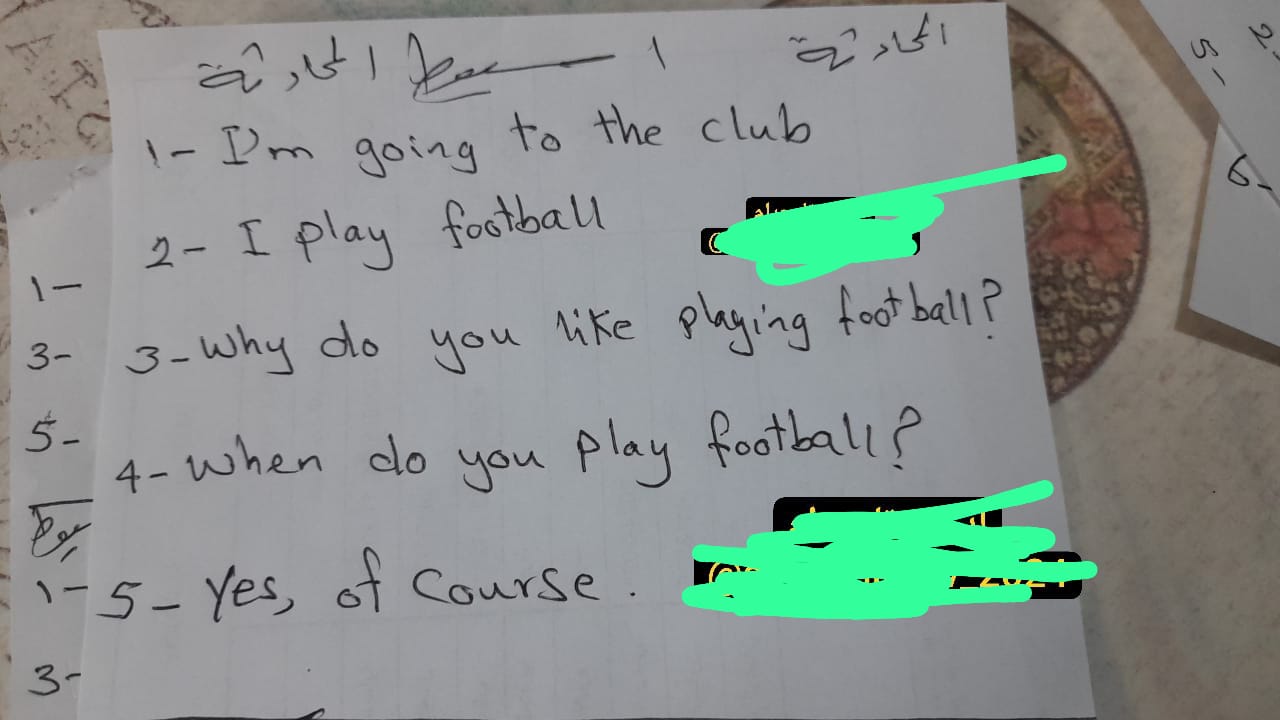 المحادثة ١ المحادثة
1- I'm going to the club
2- I play football
3- Why do you like playing football?
4- When do you play football?
5- Yes, of Course.
1-
3-
5-
1-
3-
2-
5-
6-